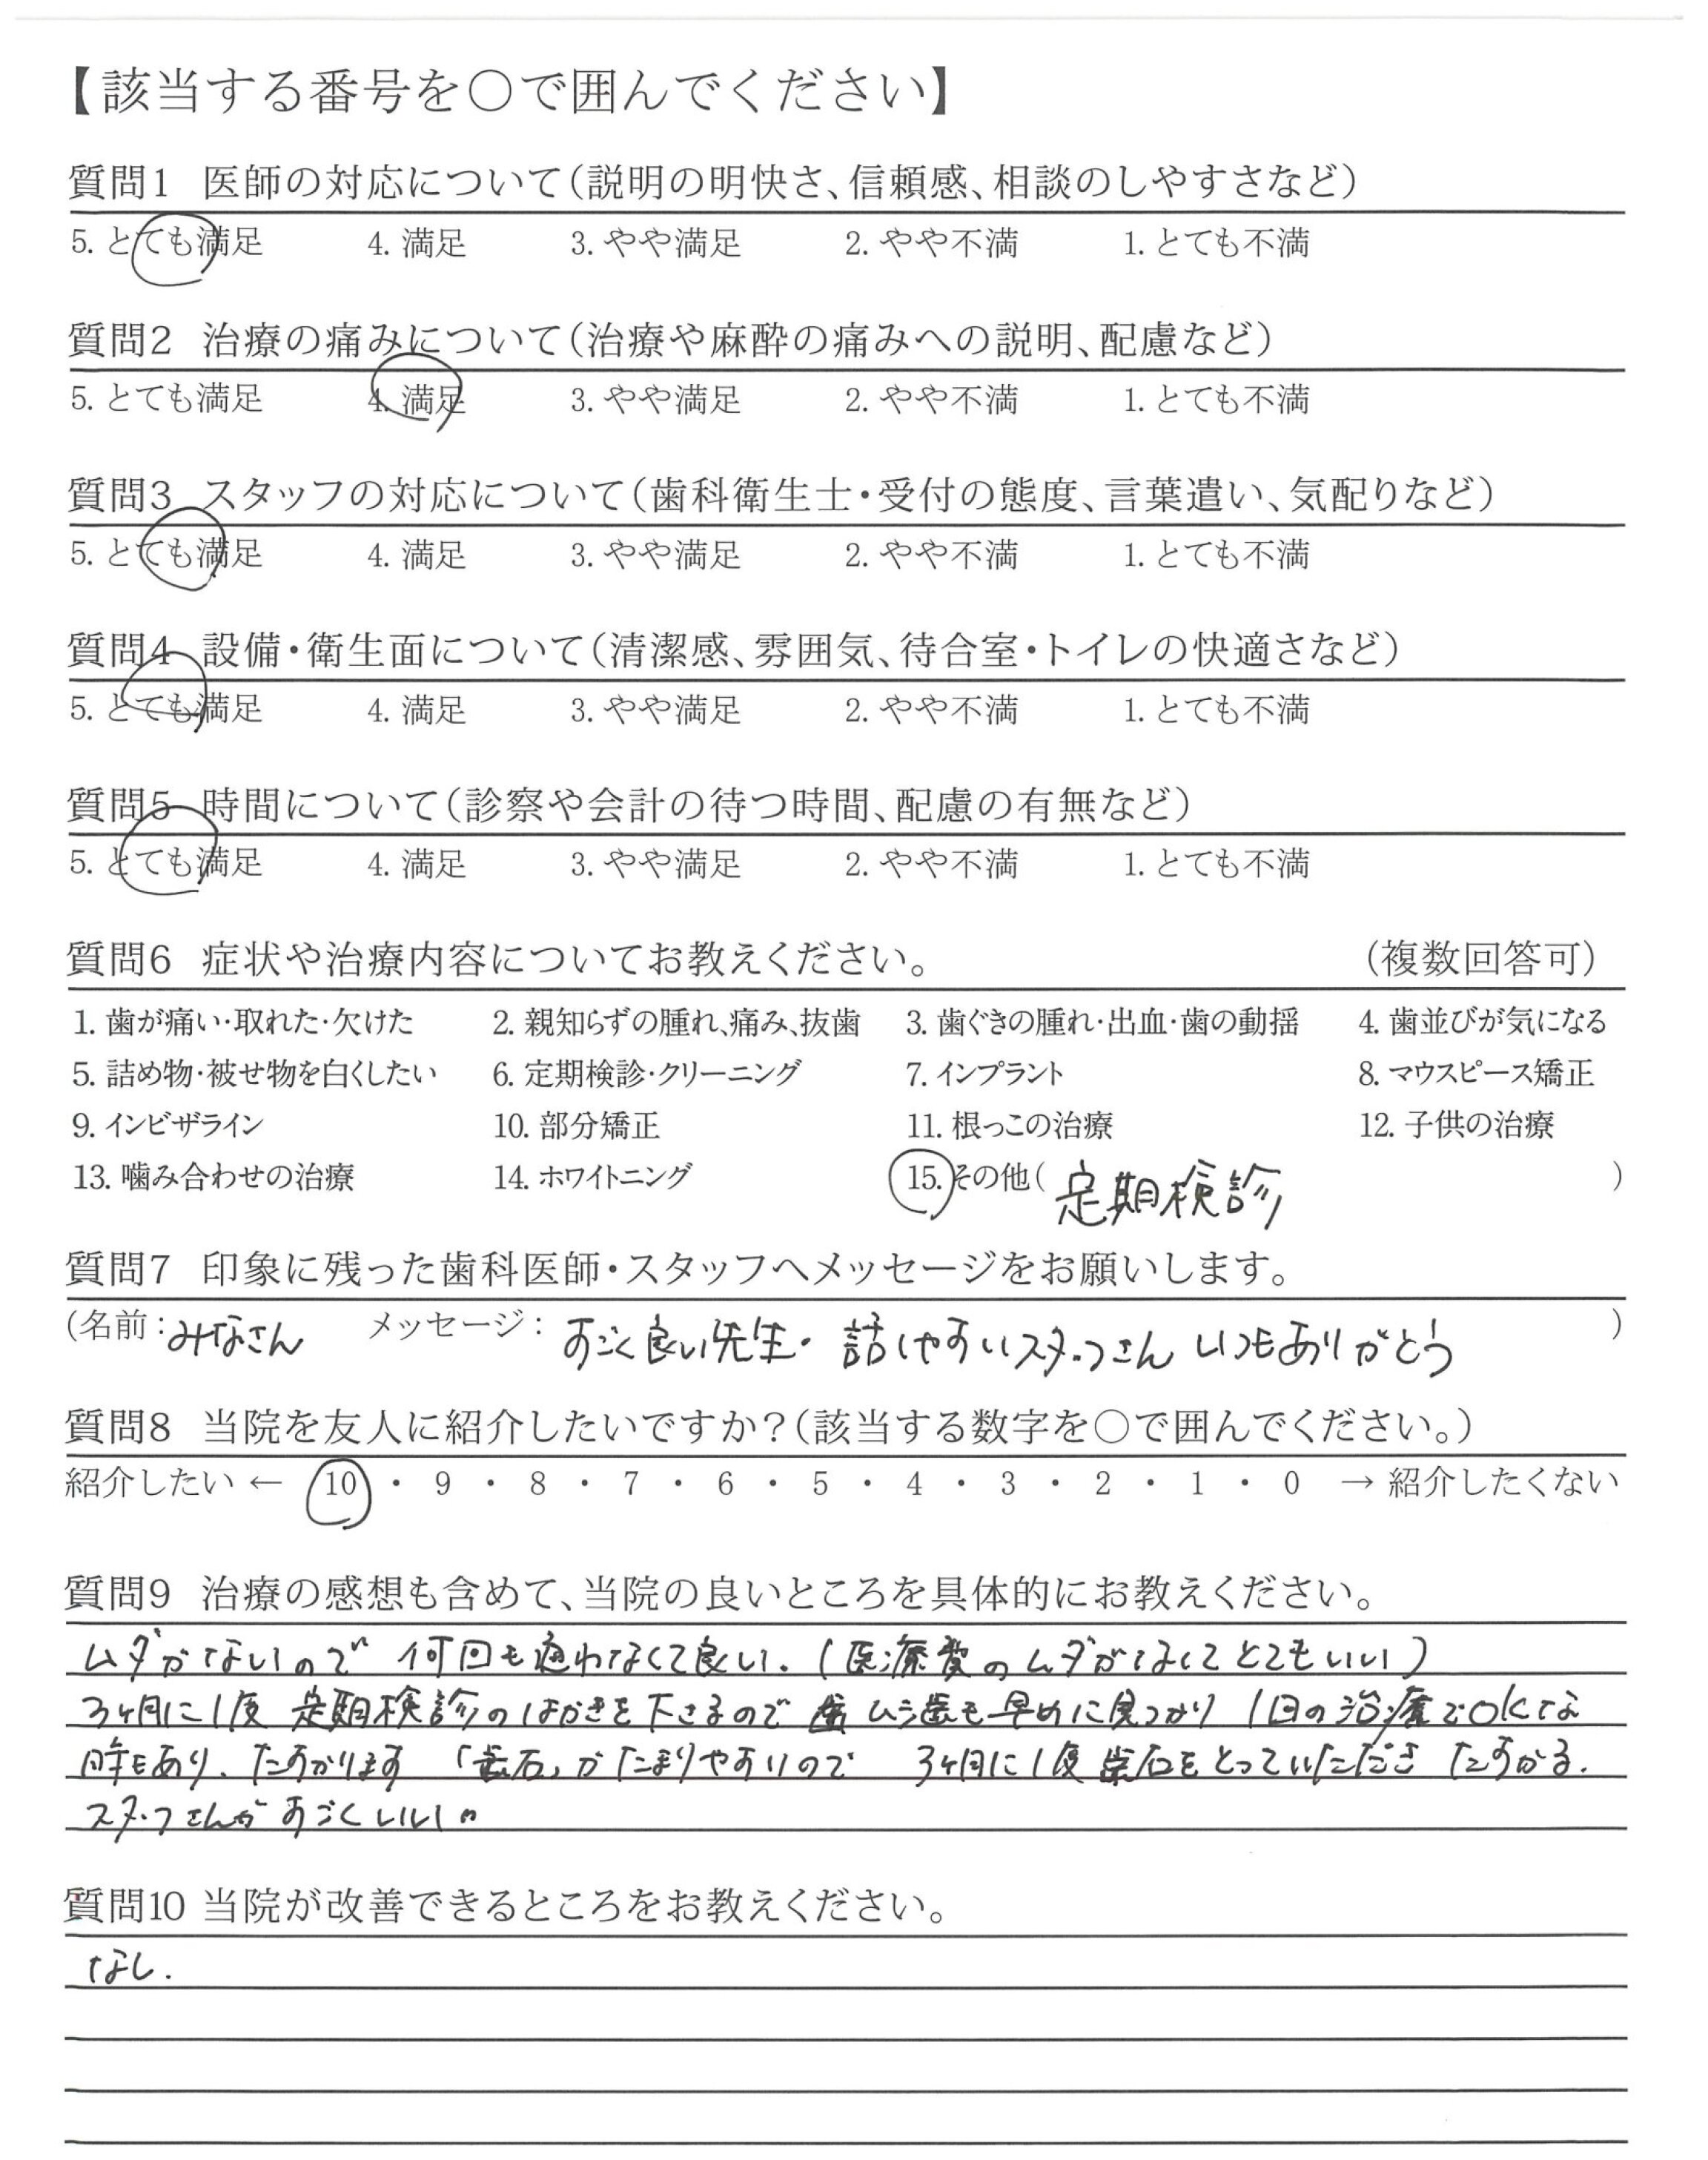 【該当する番号を○で囲んでください】
質問1 医師の対応について（説明の明快さ、信頼感、相談のしやすさなど）
5. とても満足 4. 満足 3. やや満足 2. やや不満 1. とても不満
質問2 治療の痛みについて（治療や麻酔の痛みへの説明、配慮など）
5. とても満足 4. 満足 3. やや満足 2. やや不満 1. とても不満
質問3 スタッフの対応について（歯科衛生士・受付の態度、言葉遣い、気配りなど）
5. とても満足 4. 満足 3. やや満足 2. やや不満 1. とても不満
質問4 設備・衛生面について（清潔感、雰囲気、待合室・トイレの快適さなど）
5. とても満足 4. 満足 3. やや満足 2. やや不満 1. とても不満
質問5 時間について（診察や会計の待つ時間、配慮の有無など）
5. とても満足 4. 満足 3. やや満足 2. やや不満 1. とても不満
質問6 症状や治療内容についてお教えください。 （複数回答可）
1. 歯が痛い・取れた・欠けた 2. 親知らずの腫れ、痛み、抜歯 3. 歯ぐきの腫れ・出血・歯の動揺 4. 歯並びが気になる
5. 詰め物・被せ物を白くしたい 6. 定期検診・クリーニング 7. インプラント 8. マウスピース矯正
9. インビザライン 10. 部分矯正 11. 根っこの治療 12. 子供の治療
13. 噛み合わせの治療 14. ホワイトニング 15. その他（定期検診）
質問7 印象に残った歯科医師・スタッフへメッセージをお願いします。
（名前：みなさん メッセージ：すごく良い先生・話しやすいスタッフさん いつもありがとう）
質問8 当院を友人に紹介したいですか？（該当する数字を○で囲んでください。）
紹介したい ← 10 ・ 9 ・ 8 ・ 7 ・ 6 ・ 5 ・ 4 ・ 3 ・ 2 ・ 1 ・ 0 → 紹介したくない
質問9 治療の感想も含めて、当院の良いところを具体的にお教えください。
ムダがないので 何回も通わなくて良い.（医療費のムダがなくてとてもいい）
3ヶ月に1度 定期検診のはがきを下さるので ムシ歯も早めに見つかり 1回の治療でOKな
時もあり、たすかります 「歯石」がたまりやすいので 3ヶ月に1度 歯石をとっていただき たすかる.
スタッフさんが すごくいい。
質問10 当院が改善できるところをお教えください。
なし.